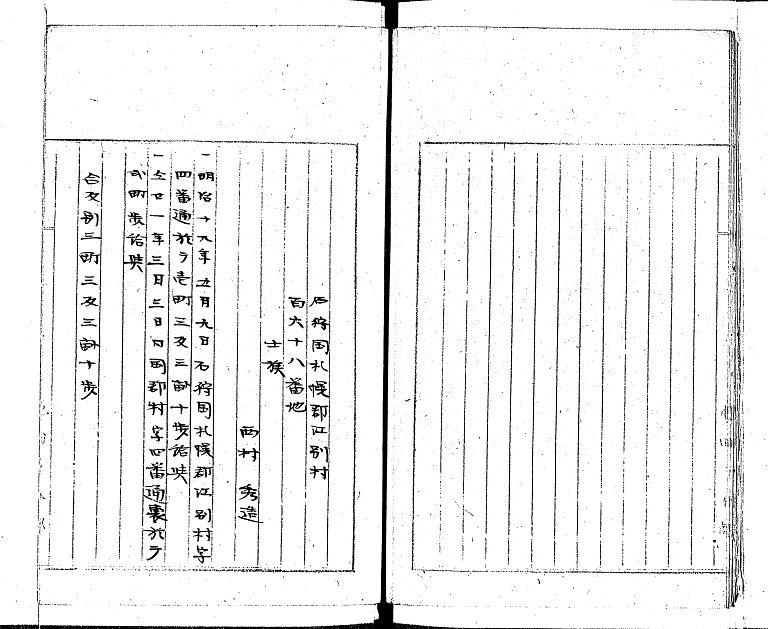 石狩国札幌郡江別村
百六十八番地
士族
西村 秀造
一明治十九年五月九日石狩国札幌郡江別村字
四番通於テ壱町三反三畝十歩給与
一仝廿一年三月三日同国郡村字四番通裏於テ
弐町歩給与
合反別三町三反三畝十歩